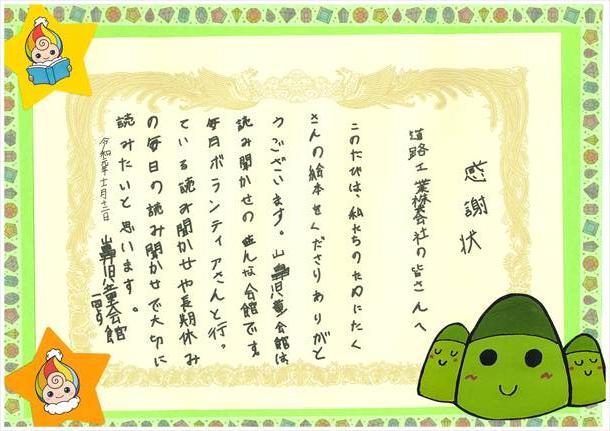 感謝状
道路工業株式会社の皆さんへ
このたびは、私たちのためにたく
さんの絵本をくださりありがと
うございます。山鼻児童会館は
読み聞かせのさかんな会館です。
毎月ボランティアさんと行っ
ている読み聞かせや長期休み
の毎日の読み聞かせで大切に
読みたいと思います。
令和六年十一月十二日
山鼻児童会館
一同